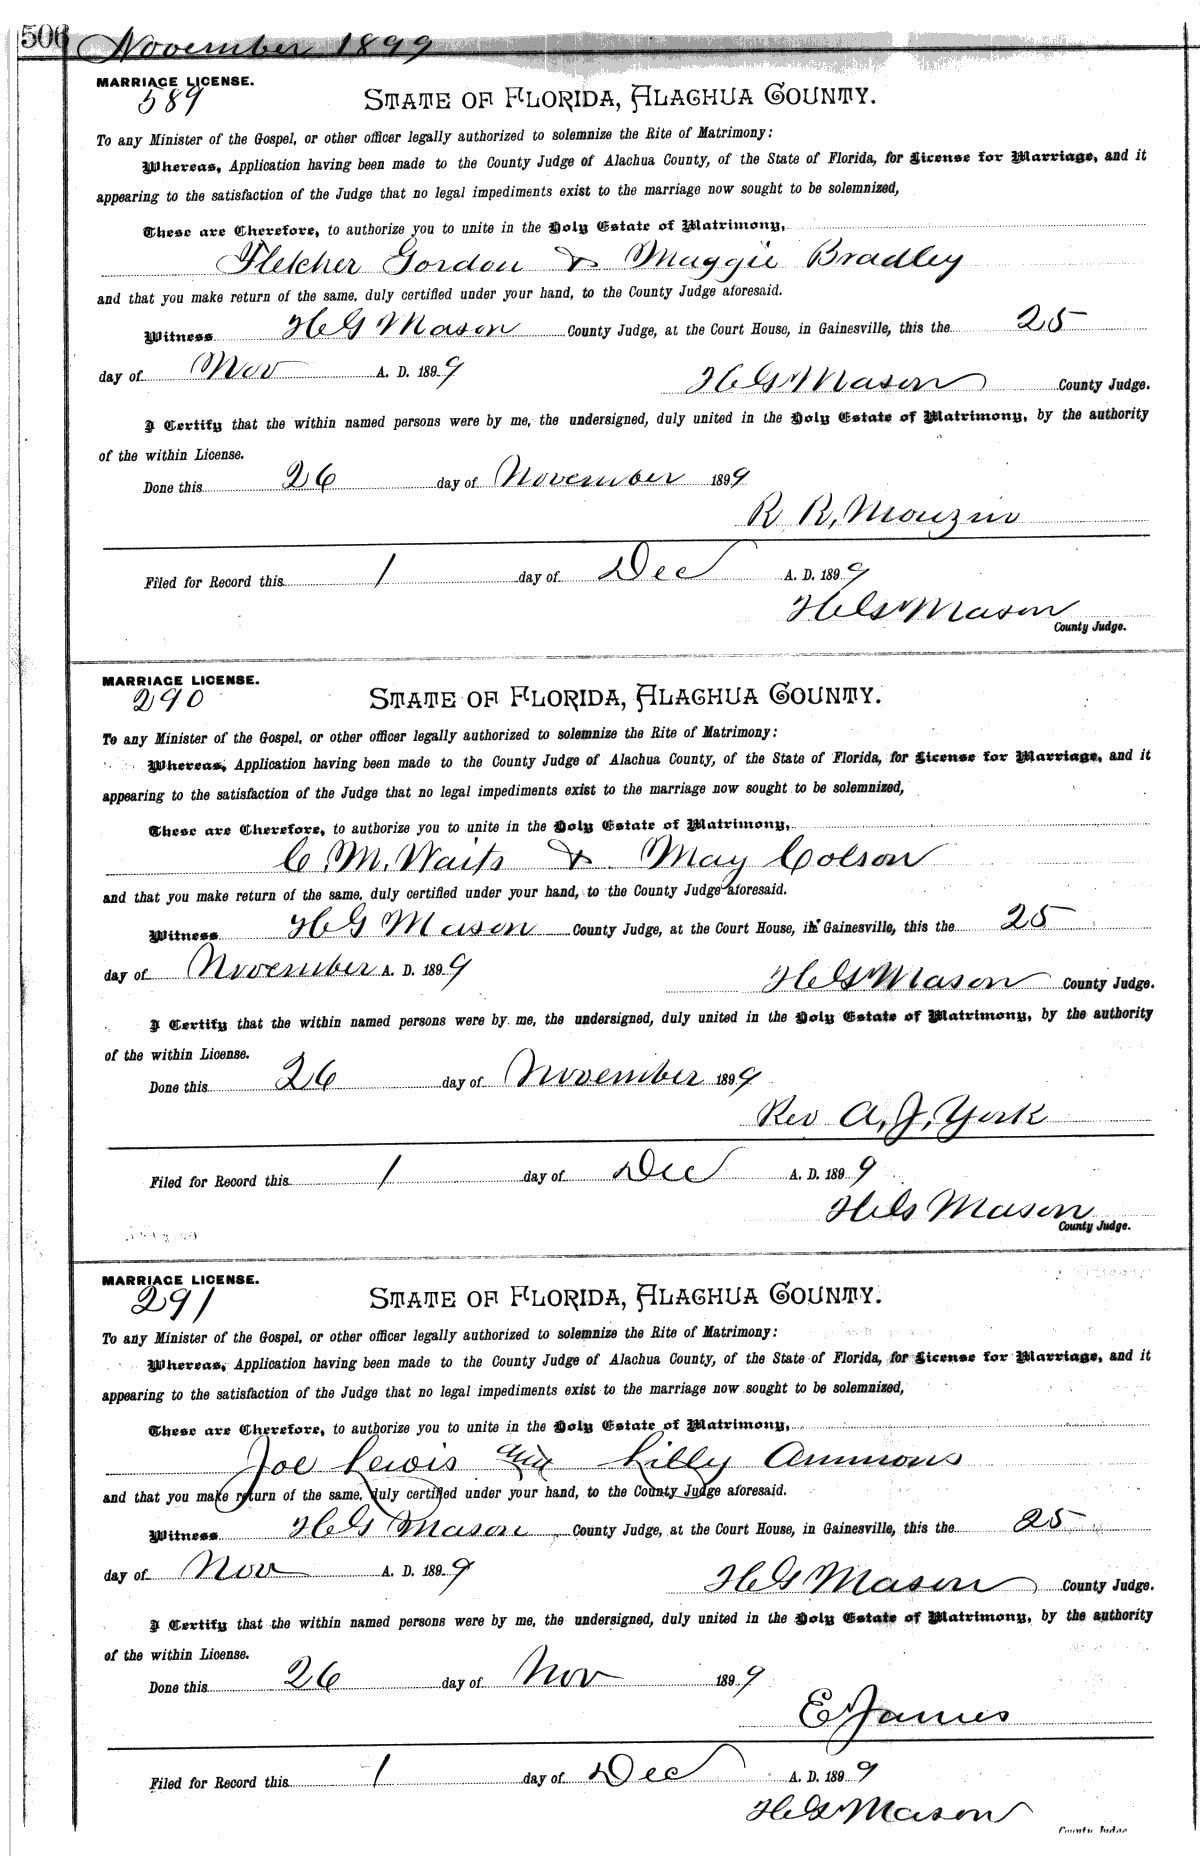 506 November 1899
MARRIAGE LICENSE.
589
STATE OF FLORIDA, ALACHUA COUNTY.
To any Minister of the Gospel, or other officer legally authorized to solemnize the Rite of Matrimony:
Whereas, Application having been made to the County Judge of Alachua County, of the State of Florida, for License for Marriage, and it
appearing to the satisfaction of the Judge that no legal impediments exist to the marriage now sought to be solemnized,
These are Therefore, to authorize you to unite in the Holy Estate of Matrimony,
Fletcher Gordon & Maggie Bradley
and that you make return of the same, duly certified under your hand, to the County Judge aforesaid.
Witness H G Mason County Judge, at the Court House, in Gainesville, this the 25
day of Nov A. D. 1899 H G Mason County Judge.
I Certify that the within named persons were by me, the undersigned, duly united in the Holy Estate of Matrimony, by the authority
of the within License.
Done this 26 day of November 1899
R R, Mouzin
Filed for Record this 1 day of Dec A. D. 1899
H G Mason
County Judge.
MARRIAGE LICENSE.
290
STATE OF FLORIDA, ALACHUA COUNTY.
To any Minister of the Gospel, or other officer legally authorized to solemnize the Rite of Matrimony:
Whereas, Application having been made to the County Judge of Alachua County, of the State of Florida, for License for Marriage, and it
appearing to the satisfaction of the Judge that no legal impediments exist to the marriage now sought to be solemnized,
These are Therefore, to authorize you to unite in the Holy Estate of Matrimony,
C. M. Waits & May Colson
and that you make return of the same, duly certified under your hand, to the County Judge aforesaid.
Witness H G Mason County Judge, at the Court House, in Gainesville, this the 25
day of November A. D. 1899 H G Mason County Judge.
I Certify that the within named persons were by me, the undersigned, duly united in the Holy Estate of Matrimony, by the authority
of the within License.
Done this 26 day of November 1899
Rev A, J, York
Filed for Record this 1 day of Dec A. D. 1899
H G Mason
County Judge.
MARRIAGE LICENSE.
291
STATE OF FLORIDA, ALACHUA COUNTY.
To any Minister of the Gospel, or other officer legally authorized to solemnize the Rite of Matrimony:
Whereas, Application having been made to the County Judge of Alachua County, of the State of Florida, for License for Marriage, and it
appearing to the satisfaction of the Judge that no legal impediments exist to the marriage now sought to be solemnized,
These are Therefore, to authorize you to unite in the Holy Estate of Matrimony,
Joe Lewis and Lilly Ammons
and that you make return of the same, duly certified under your hand, to the County Judge aforesaid.
Witness H G Mason County Judge, at the Court House, in Gainesville, this the 25
day of Nov A. D. 1899 H G Mason County Judge.
I Certify that the within named persons were by me, the undersigned, duly united in the Holy Estate of Matrimony, by the authority
of the within License.
Done this 26 day of Nov 1899
E James
Filed for Record this 1 day of Dec A. D. 1899
H G Mason
County Judge